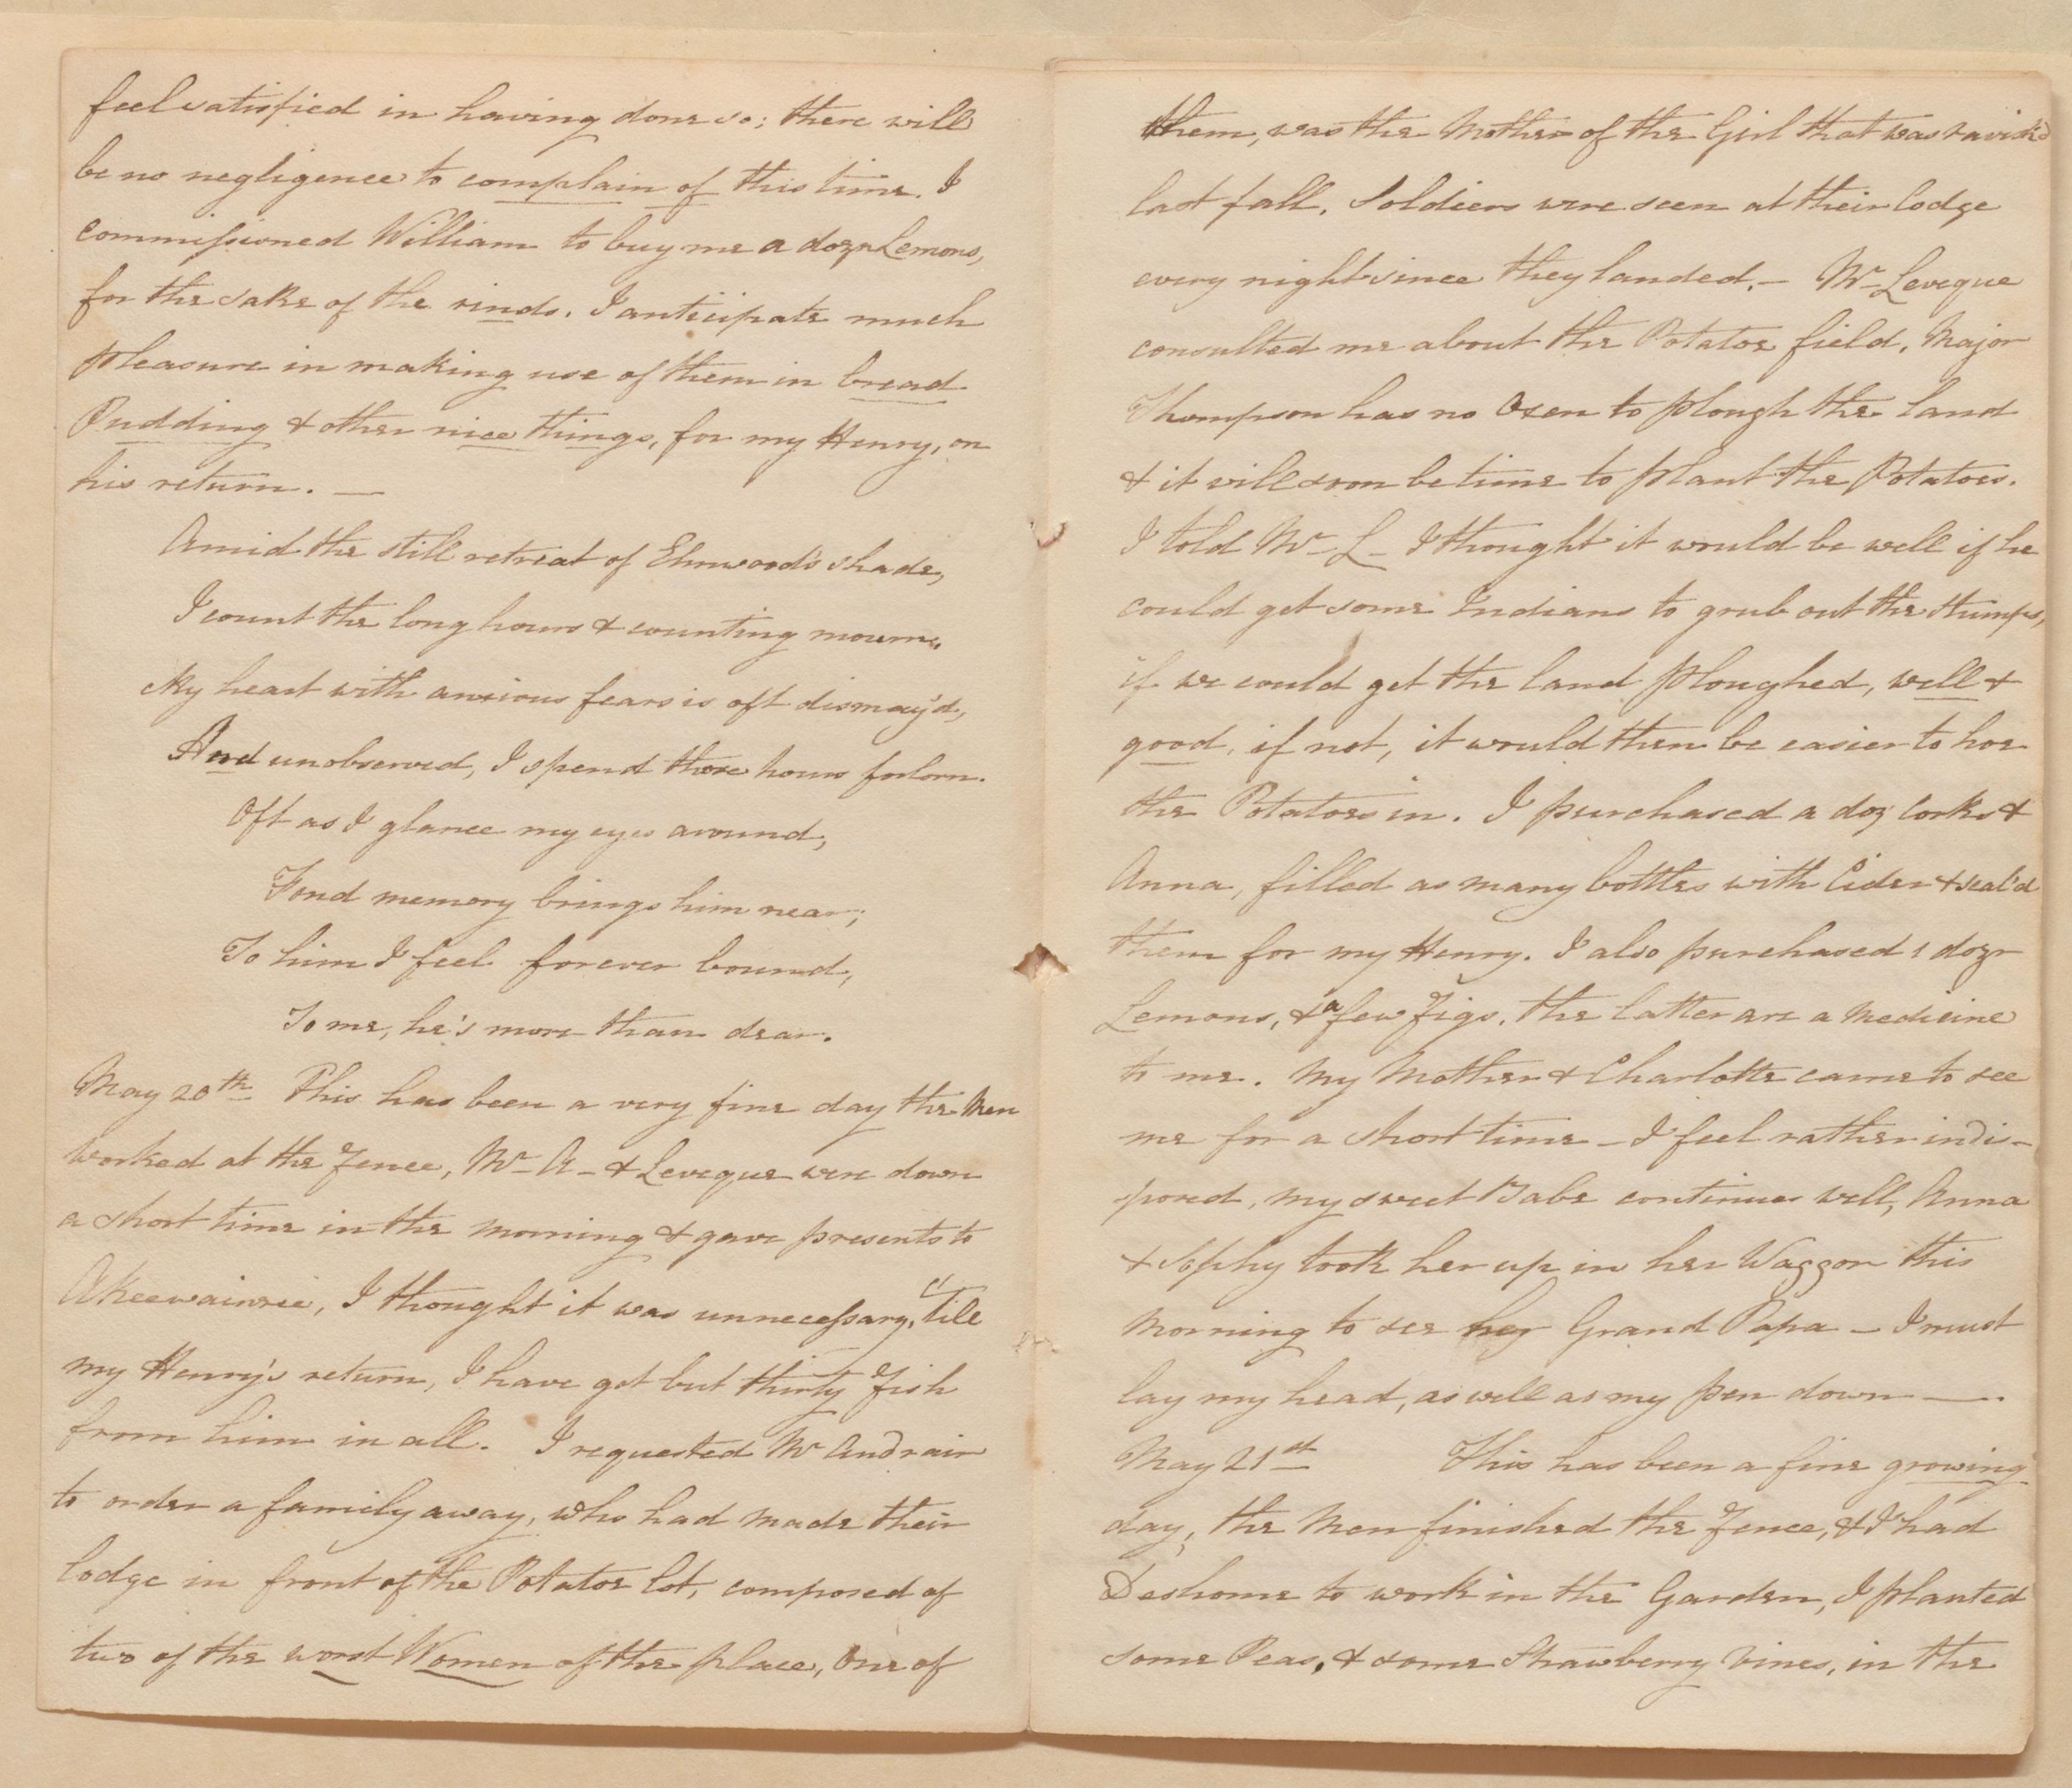 feel satisfied in having done so; there will
be no negligence to complain of this time. I
commissioned William to buy me a dozn Lemons,
for the sake of the rinds. I anticipate much
pleasure in making use of them in bread
Pudding & other nice things, for my Henry, on
his return. —
Amid the still retreat of Elmwood's shade,
I count the long hours & counting mourn,
My heart with anxious fears is oft dismay'd,
And unobserved, I spend those hours forlorn.
Oft as I glance my eyes around,
Fond memory brings him near;
To him I feel forever bound,
To me, he's more than dear.
May 20th This has been a very fine day the Men
worked at the Fence, Mr A— & Leveque were down
a short time in the morning & gave presents to
Akeewainzee, I thought it was unnecessary, till
my Henry's return, I have got but thirty Fish
from him in all. I requested Mr Andrain
to order a family away, who had made their
lodge in front of the Potatoe lot, composed of
two of the worst Women of the place, One of
them, was the Mother of the Girl that was ravish'd
last fall. Soldiers were seen at their lodge
every night since they landed. — Mr Leveque
consulted me about the Potatoe field, Major
Thompson has no Oxen to plough the land
& it will soon be time to plant the Potatoes.
I told Mr L— I thought it would be well if he
could get some Indians to grub out the stumps,
if we could get the land ploughed, well &
good, if not, it would then be easier to hoe
the Potatoes in. I purchased a doz corks &
Anna, filled as many bottles with Cider & seal'd
them for my Henry. I also purchased 1 dozn
Lemons, & a few Figs, the latter are a Medicine
to me. My Mother & Charlotte came to see
me for a short time — I feel rather indis-
posed, my sweet Babe continues well, Anna
& Sophy took her up in her Waggon this
morning to see her Grand Papa — I must
lay my head, as well as my pen down —.
May 21st This has been a fine growing
day, the Men finished the Fence, & I had
Deshome to work in the Garden, I planted
some Peas, & some Strawberry Vines, in the